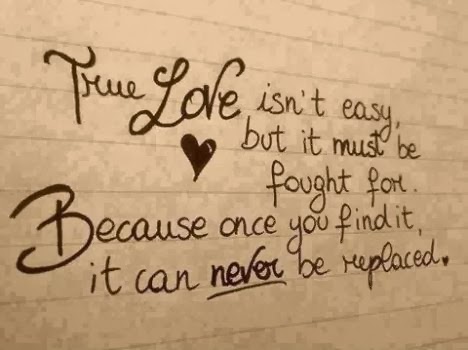 True Love isn't easy,
but it must be
fought for.
Because once you find it,
it can never be replaced.